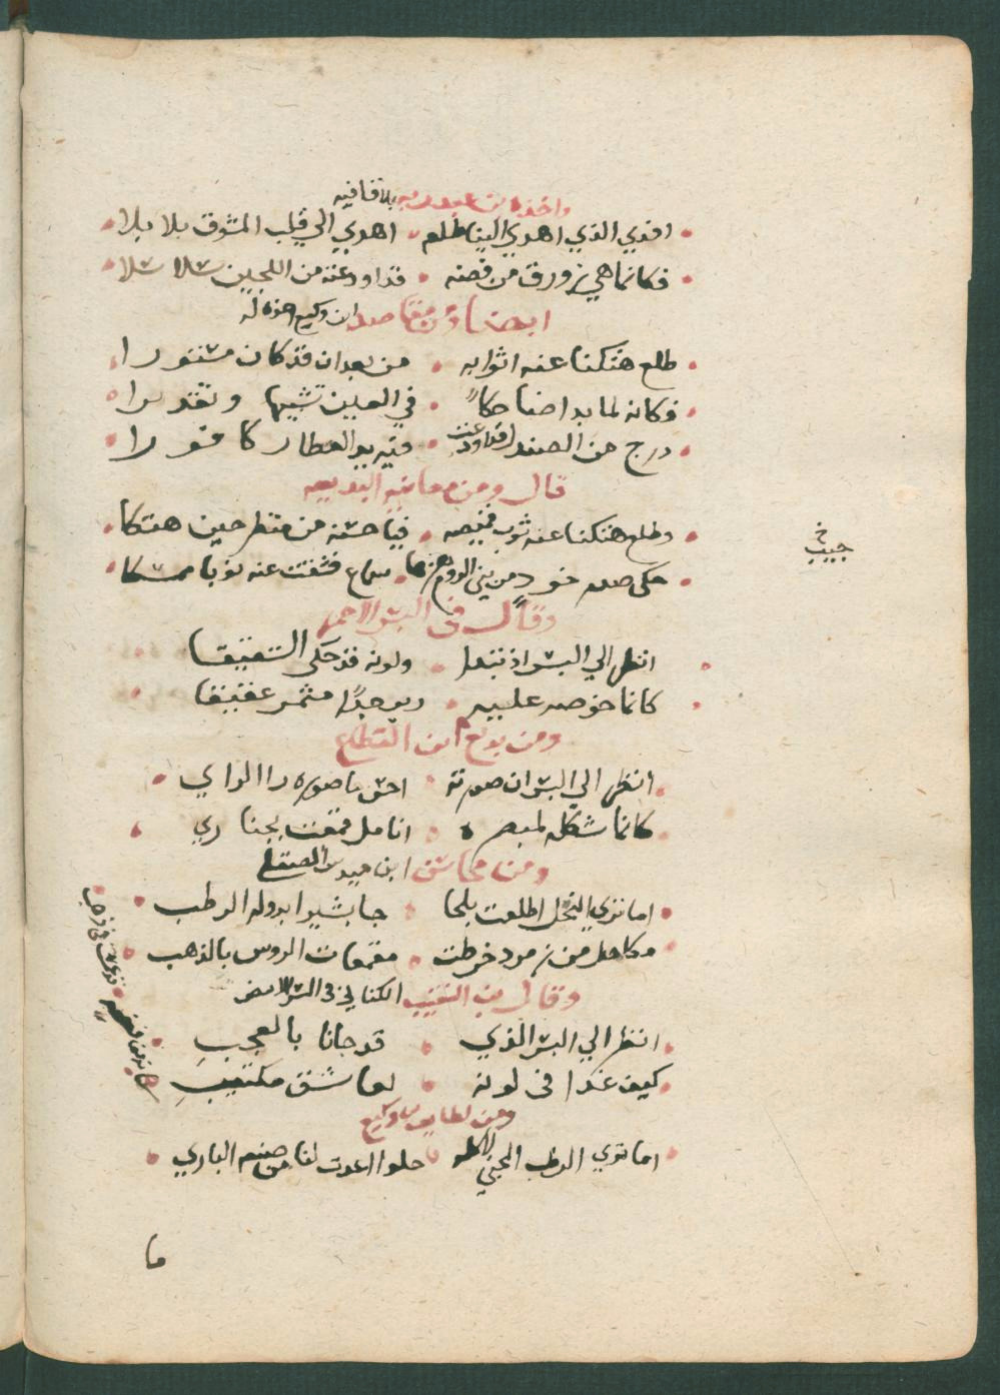 واخذه ابن عبد ربه بلا قافيه
افدي الذي اهدي الينا طلع اهدي الي قلب المشوق بلا بلا
فكانما هي زورق من فضه قد اودعته من اللجين سلا سلا
ايضا ابن وكيع اخذه له
طلع هتكنا عنه اثوابه من بعد ان قد كان مستورا
فكانه لما بدا ضاحكا في العين تشبيها وتقديرا
درج من الصندل قد اودعت فيه يد العطار كافورا
قال ومن معانيه البديعه
وطلع هتكنا عنه ثوب قميصه فيا حسنه من منظر حين هتكا
حكي صدر خود من بني الروم هزها سماع فشقت عنه ثوبا ممسكا
جيب خ
وقال في البسر الاحمر
انظر الي البسر اذ تبدا ولونه قد حكي الشقيقا
كانما خوصه عليه زبرجدا مثمر عقيقا
ومن بديع ابن القطاع
انظر الي البسر ان صورته احسن ما صوره را الراي
كانما شكله لمبصره انامل قمعت بحناء ري
ومن محاسن ابن حمديس الصقلي
اما تري النخل اطلعت بلحا جا بشيرا بدولة الرطب
مكاحل من زمرد خرطت مقمعات الروس بالذهب
وقال ابن النقيب الكناني في البسر الاصفر
انظر الي البسر الذي قد جانا بالعجب
كيف غدا في لونه لعاشق مكتيب
ومن لطايف ابن وكيع
اما تري الرطب المجني لاكله حلوا اعدت لنا من صنعه الباري
ما